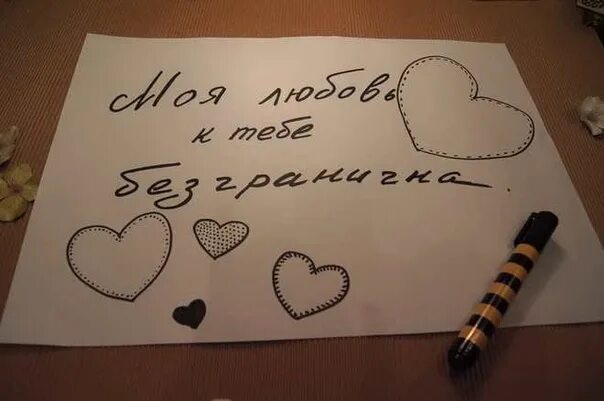 Моя любовь
к тебе
безгранична.